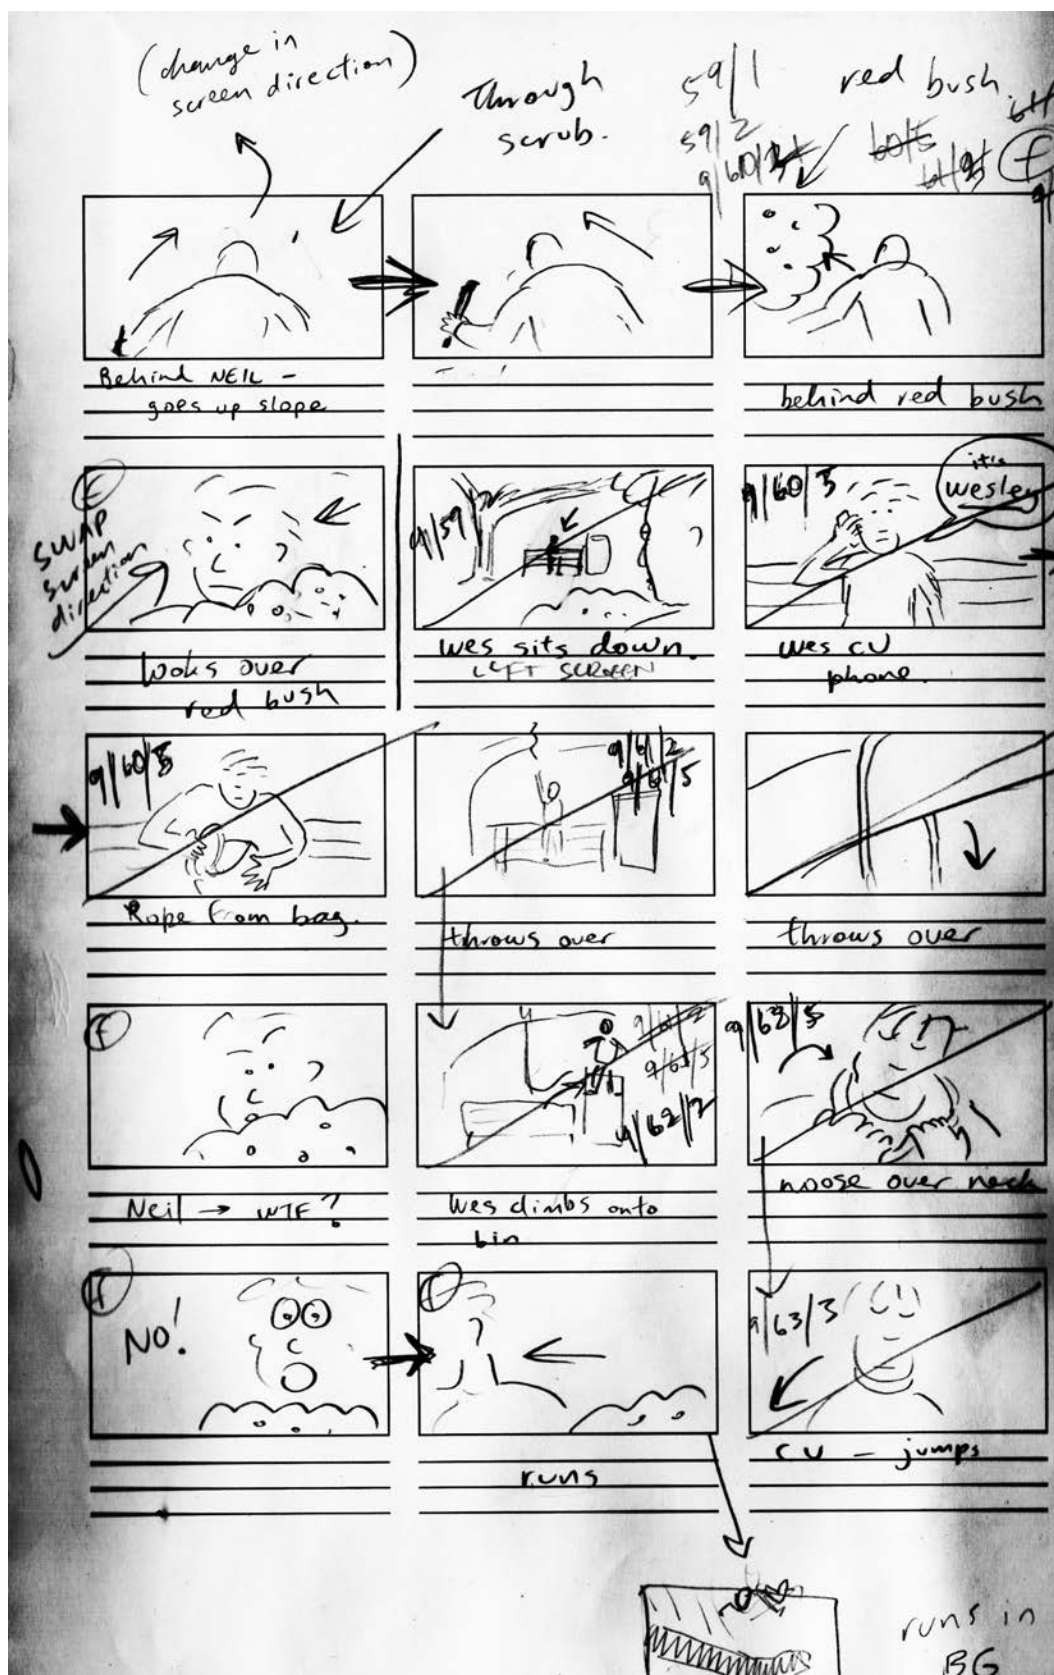 (change in
screen direction)
Through
scrub.
59/1
59/2
red bush.
60/5
Behind NEIL -
goes up slope
behind red bush
SWAP
screen
direction
looks over
red bush
9/59/2
wes sits down.
LEFT SCREEN
9/60/3
it's
wesley
wes CU
phone.
Rope from bag.
9/61/2
9/61/5
throws over
throws over
Neil → WTF?
9/61/2
9/61/5
9/62/2
Wes climbs onto
bin
9/63/3
noose over neck
NO!
runs
9/63/3
CU - jumps
runs in
BG